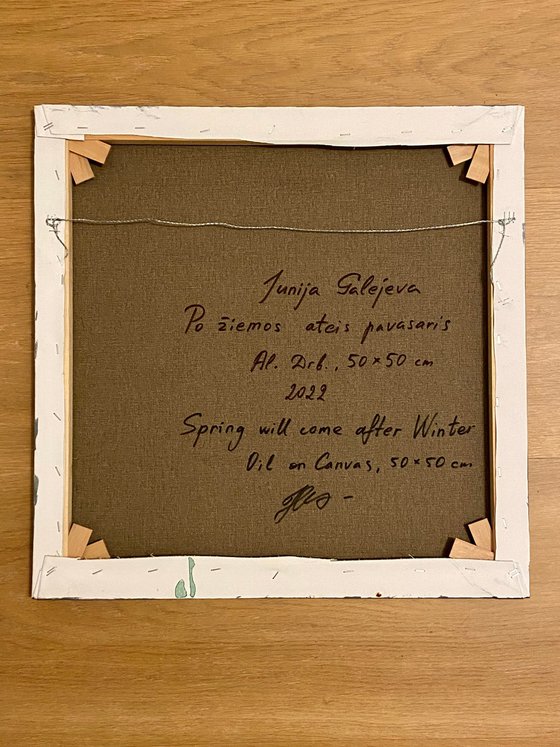 Junija Galejeva
Po žiemos ateis pavasaris
Al. Drb., 50×50 cm
2022
Spring will come after Winter
Oil on Canvas, 50×50 cm